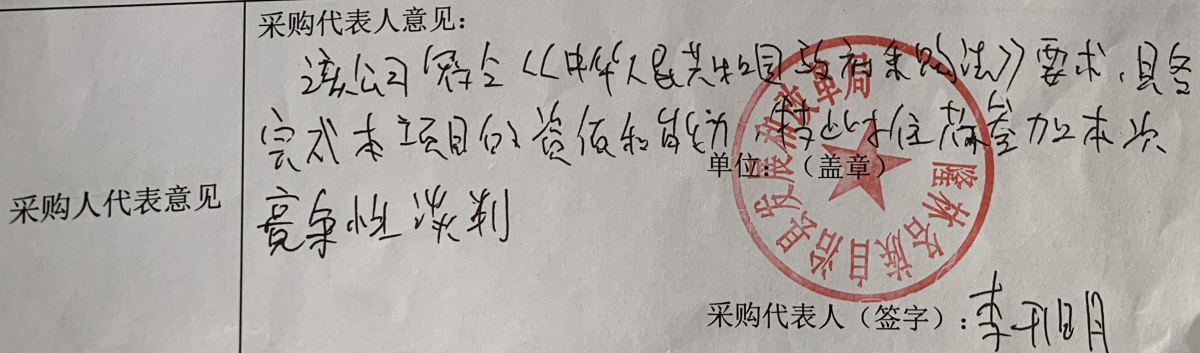 采购人代表意见
采购代表人意见：
该公司符合《中华人民共和国政府采购法》要求，具备
完成本项目的资质和能力，特此推荐参加本次
竞争性谈判
单位：（盖章）
隆林各族自治县发展和改革局
采购代表人（签字）：李